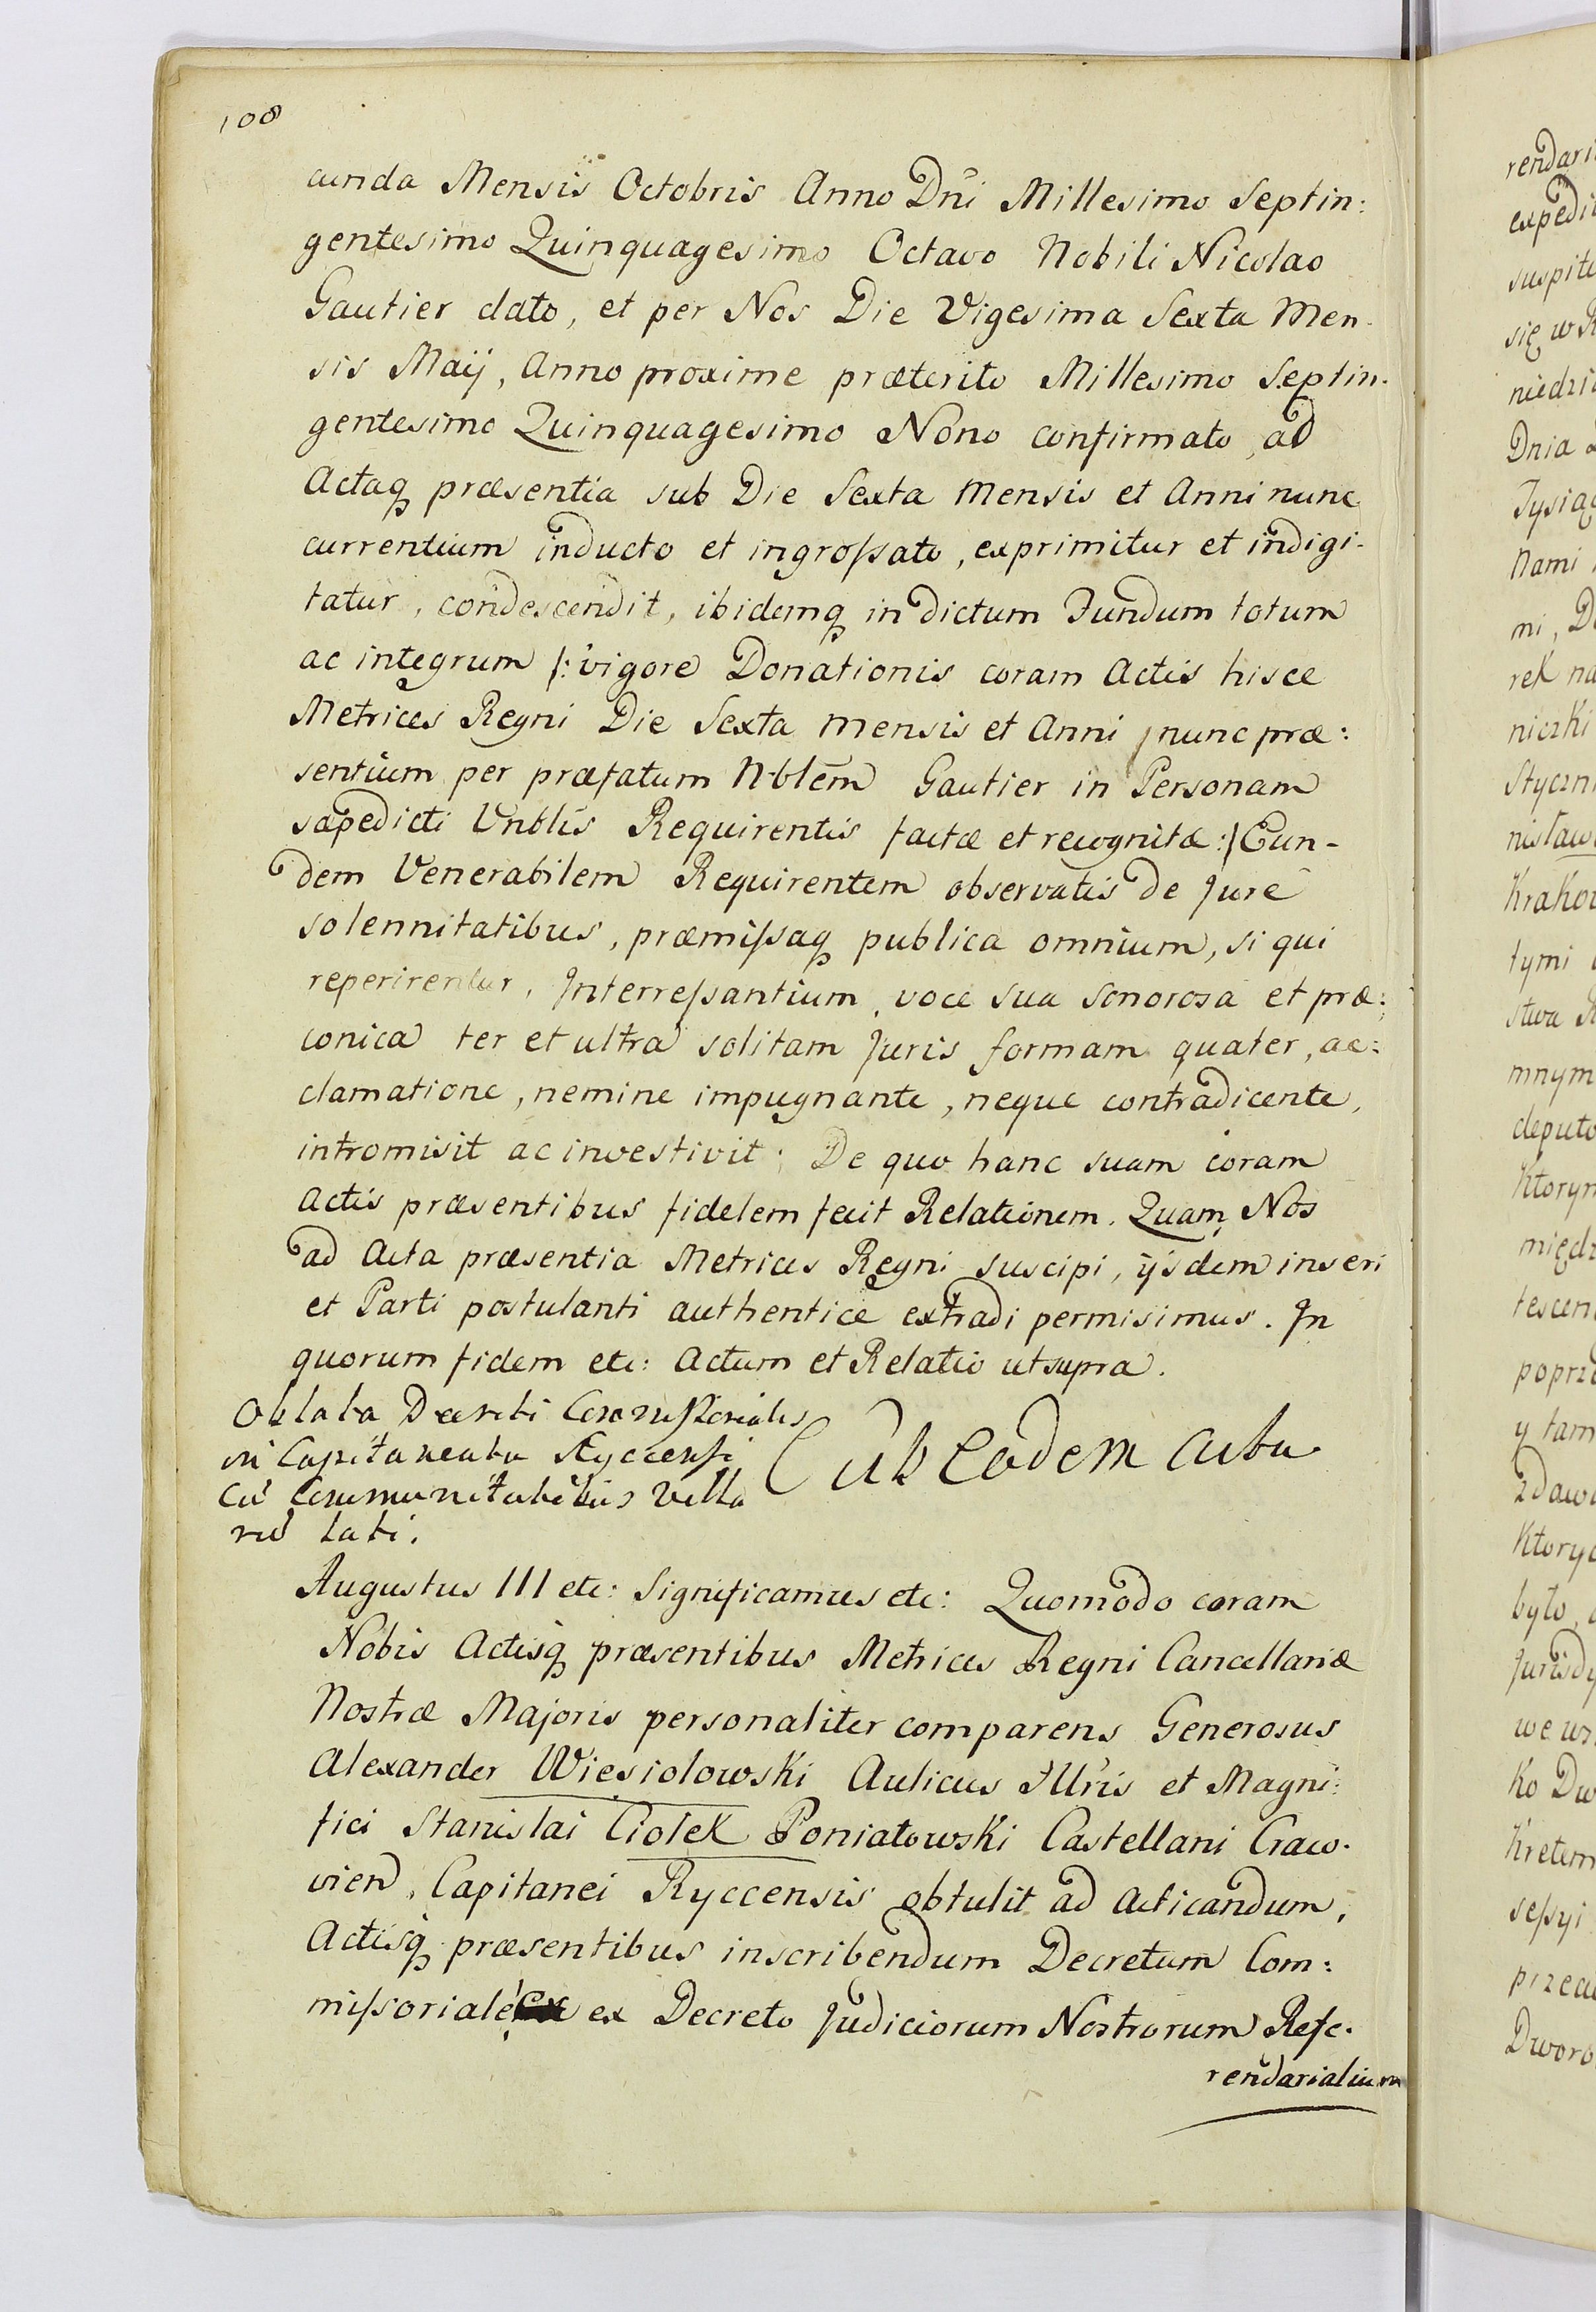 108
cunda Mensis Octobris Anno Dni Millesimo Septin:
gentesimo Quinquagesimo Octavo Nobili Nicolao
Gautier dato, et per Nos Die Vigesima Sexta Men-
sis Maij, Anno proxime præterito Millesimo Septin-
gentesimo Quinquagesimo Nono confirmato, ad
Actaq præsentia sub Die Sexta Mensis et Anni nunc
currentium inducto et ingrossato, exprimitur et indigi-
tatur, condescendit, ibidemq in dictum Fundum totum
ac integrum /: vigore Donationis coram Actis hisce
Metrices Regni Die Sexta Mensis et Anni nunc præ:
sentium per præfatum Nblem Gautier in Personam
sæpedicti Vnblis Requirentis factæ et recognitæ :/ Eun-
dem Venerabilem Requirentem observatis de Jure
solennitatibus, præmissaq publica omnium, si qui
reperirentur, Interressantium, voce sua sonorosa et præ:
conica ter et ultra solitam Juris formam quater, ac:
clamatione, nemine impugnante, neque contradicente,
intromisit ac investivit; De quo hanc suam coram
Actis præsentibus fidelem fecit Relationem. Quam Nos
ad Acta præsentia Metrices Regni suscipi, ijsdem inseri
et Parti postulanti authentice extradi permisimus. In
quorum fidem etc: Actum et Relatio ut supra.
Oblata Decreti Commissorialis
in Capitaneatu Ryccensi
cu Communitatibus Villa
ru lati.
Sub Eodem Actu
Augustus III etc: Significamus etc: Quomodo coram
Nobis Actisq præsentibus Metrices Regni Cancellariæ
Nostræ Majoris personaliter comparens Generosus
Alexander Wiesiolowski Aulicus Illris et Magni:
fici Stanislai Ciolek Poniatowski Castellani Craco-
vien, Capitanei Ryccensis obtulit ad Acticandum,
Actisq præsentibus inscribendum Decretum Com:
missoriale ex Decreto Judiciorum Nostrorum Refe-
rendarialium
rendari
expedi
suspit
się w R
niedzi
Dnia
Tysiąc
Nami
mi, D
rek na
niczki
Styczn
nisław
Krakow
tymi
stwa R
mnym
deputo
Ktorym
międz
tescen
poprz
y tam
zdaw
Ktoryc
było,
Jurisdy
we w
ko Dw
kretem
sessyi
przec
Dworo